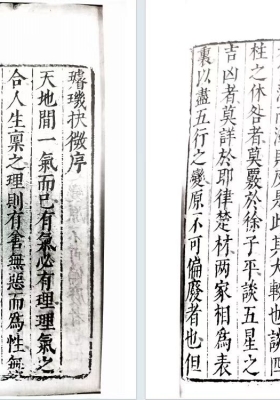 璿璣抉微序
天地間一氣而已有氣必有理理氣之
合人生稟之理則有善無惡而為性
此其大較也談四
柱之休咎者莫覈於徐子平談五星之
吉凶者莫詳於耶律楚材两家相為表
裏以盡五行之變原不可偏廢者也但